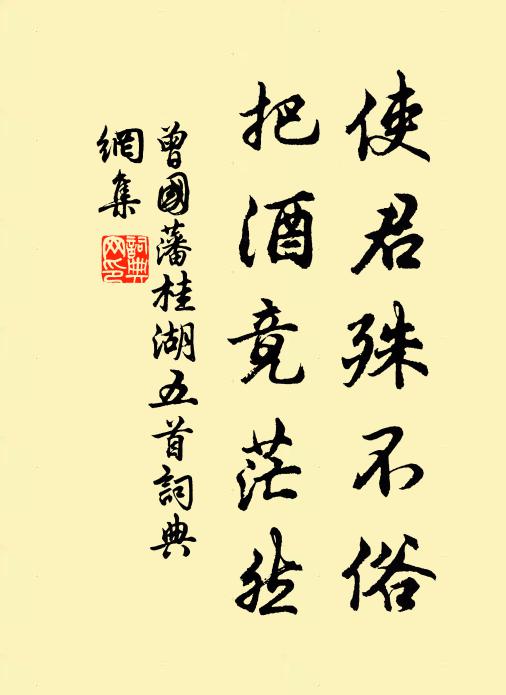 使君殊不俗
把酒竟茫然
曾國藩桂湖五首詞典
網集
詞典
网印